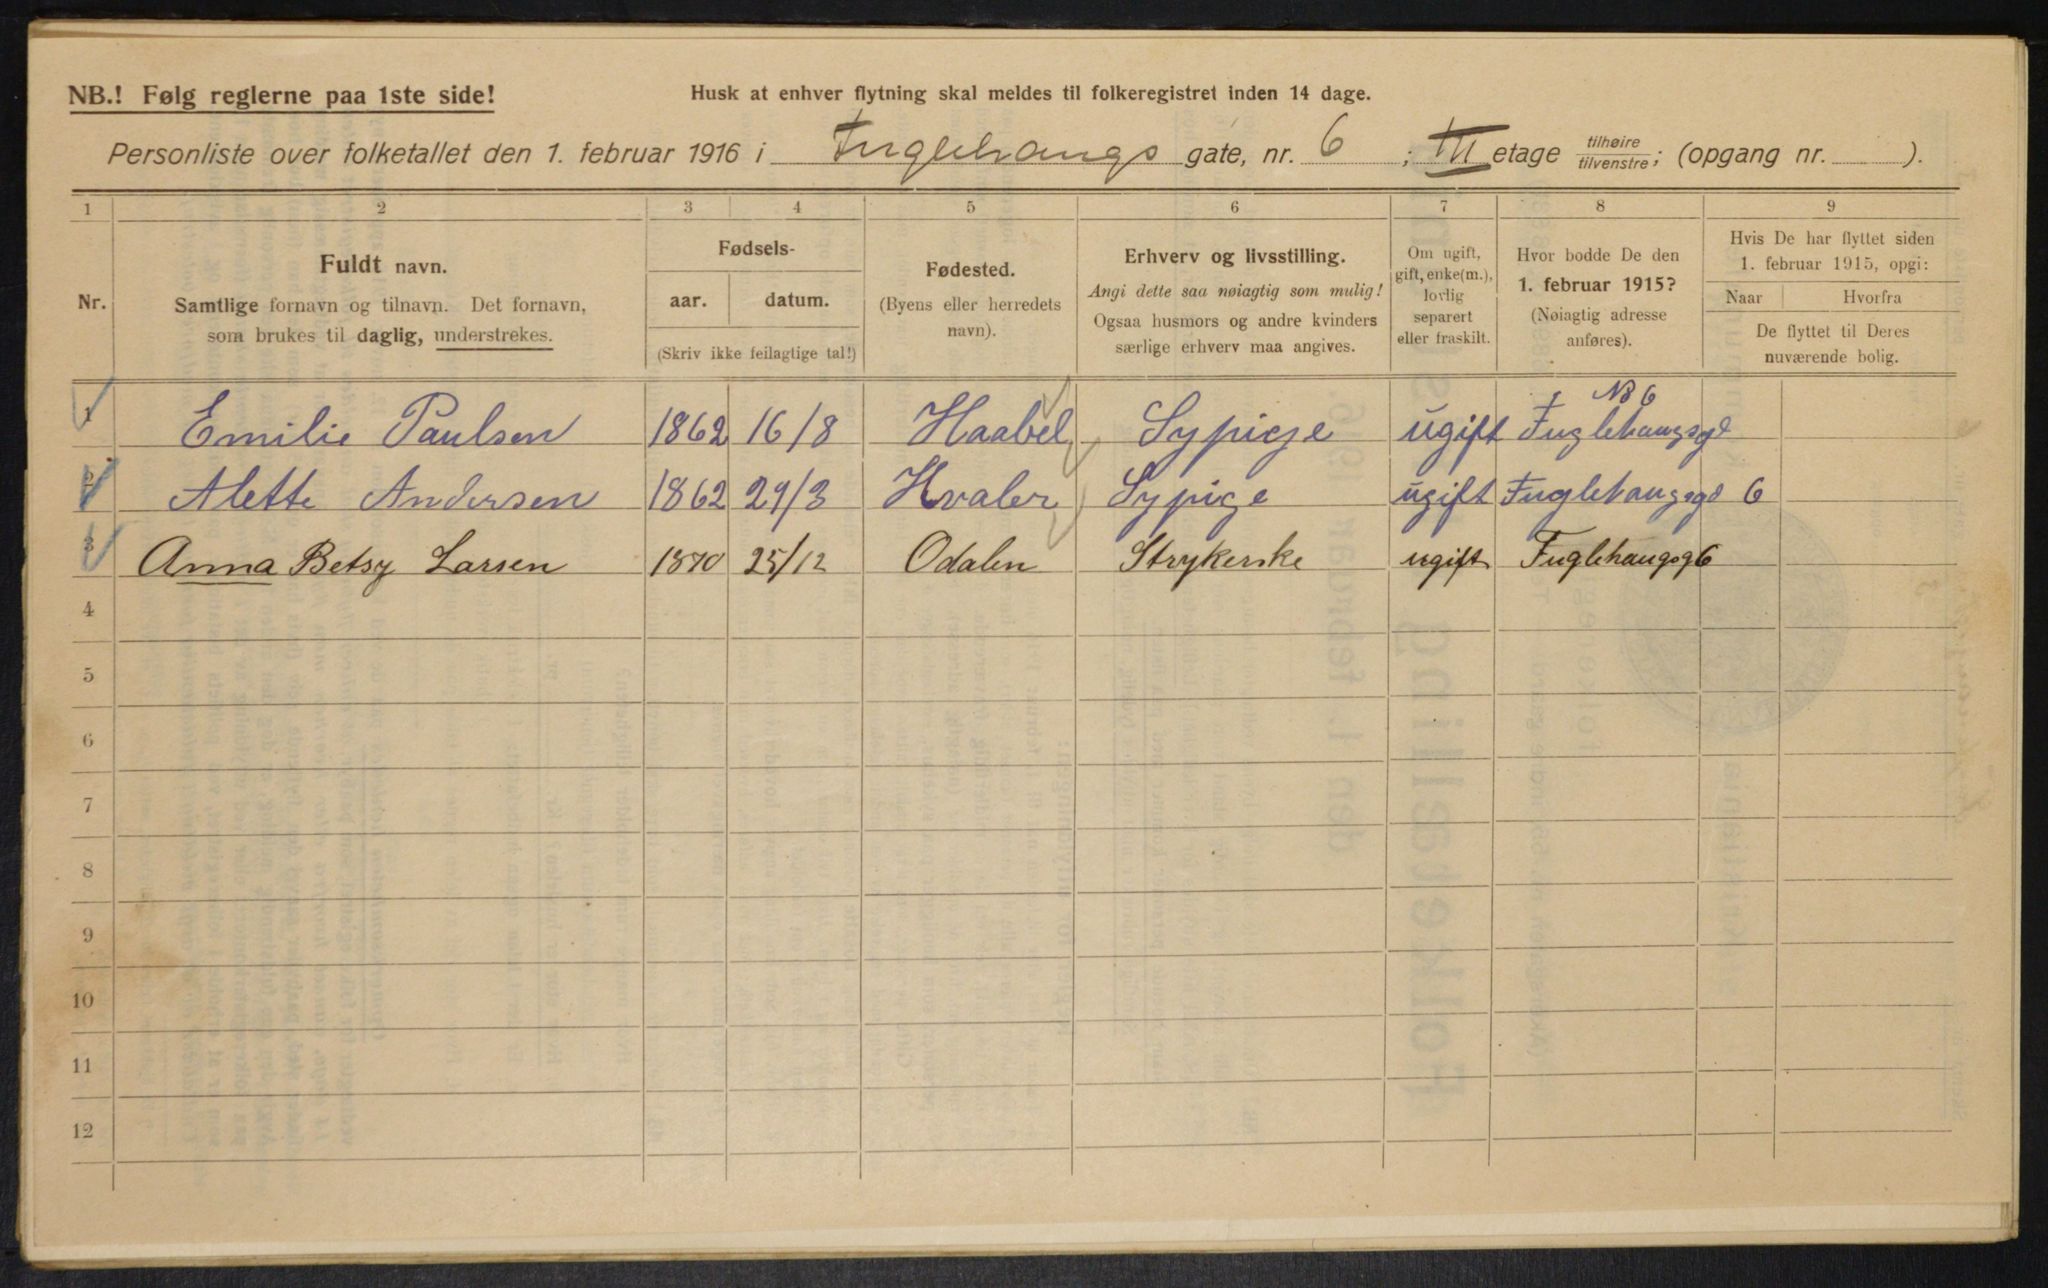 NB.! Følg reglerne paa 1ste side!
Husk at enhver flytning skal meldes til folkeregistret inden 14 dage.
Personliste over folketallet den 1. februar 1916 i Fuglehaugs gate, nr. 6 ; III etage tilhøire tilvenstre; (opgang nr. ).
1 2 3 4 5 6 7 8 9
Nr.
Fuldt navn.
Samtlige fornavn og tilnavn. Det fornavn,
som brukes til daglig, understrekes.
Fødsels-
aar. datum.
(Skriv ikke feilagtige tal!)
Fødested.
(Byens eller herredets
navn).
Erhverv og livsstilling.
Angi dette saa nøiagtig som mulig!
Ogsaa husmors og andre kvinders
særlige erhverv maa angives.
Om ugift,
gift, enke(m.),
lovlig
separert
eller fraskilt.
Hvor bodde De den
1. februar 1915?
(Nøiagtig adresse
anføres).
Hvis De har flyttet siden
1. februar 1915, opgi:
Naar Hvorfra
De flyttet til Deres
nuværende bolig.
1 Emilie Paulsen 1862 16/8 Haabel Sypige ugift Fuglehaugsgd No 6
2 Alette Andersen 1862 29/3 Hvaler Sypige ugift Fuglehaugsgd 6
3 Anna Betsy Larsen 1870 25/12 Odalen Strykerske ugift Fuglehaugsg 6
4
5
6
7
8
9
10
11
12